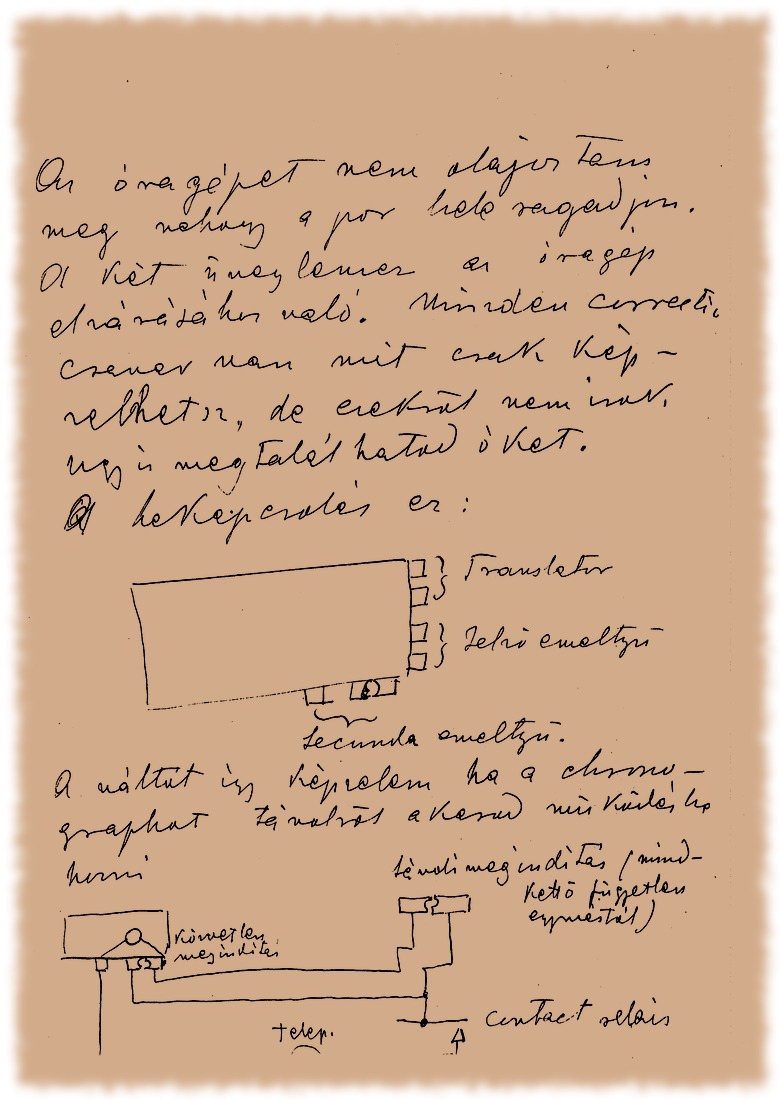 Az óragépet nem olajoztam
meg nehogy a por bele ragadjon.
A két üveglemez az óragép
elzárásához való. Minden correcti,
csavar van mit csak kép-
zelhetsz, de ezekről nem irok,
ugy is megtalálhatod őket.
A bekapcsolás ez:
Translator
Felső emeltyü
Secunda emeltyü.
A váltót igy képzelem ha a chrono-
graphot távolról akarod működésbe
hozni
távoli meginditás (mind-
kettő független
egymástól)
Közvetlen
meginditás
contact relais
+ telep.